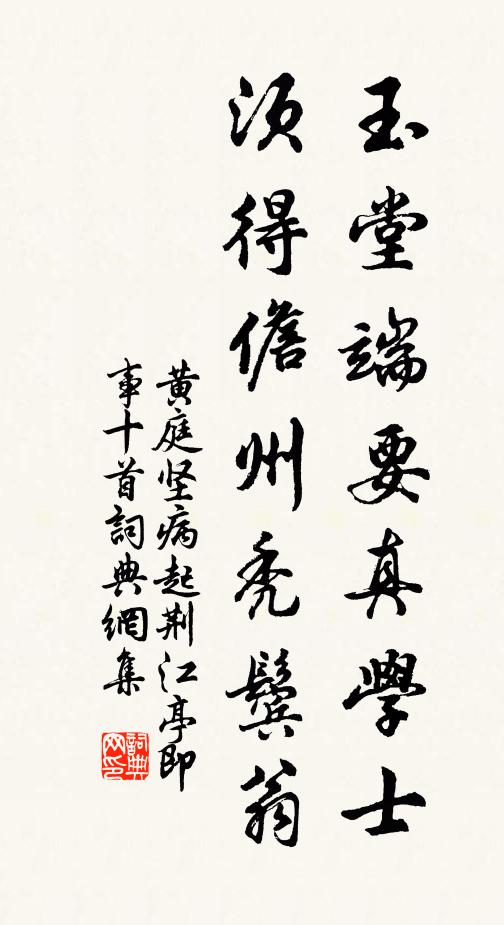 玉堂端要真學士
須得儋州禿鬢翁
黄庭坚病起荆江亭即
事十首詞典網集
詞典
网印